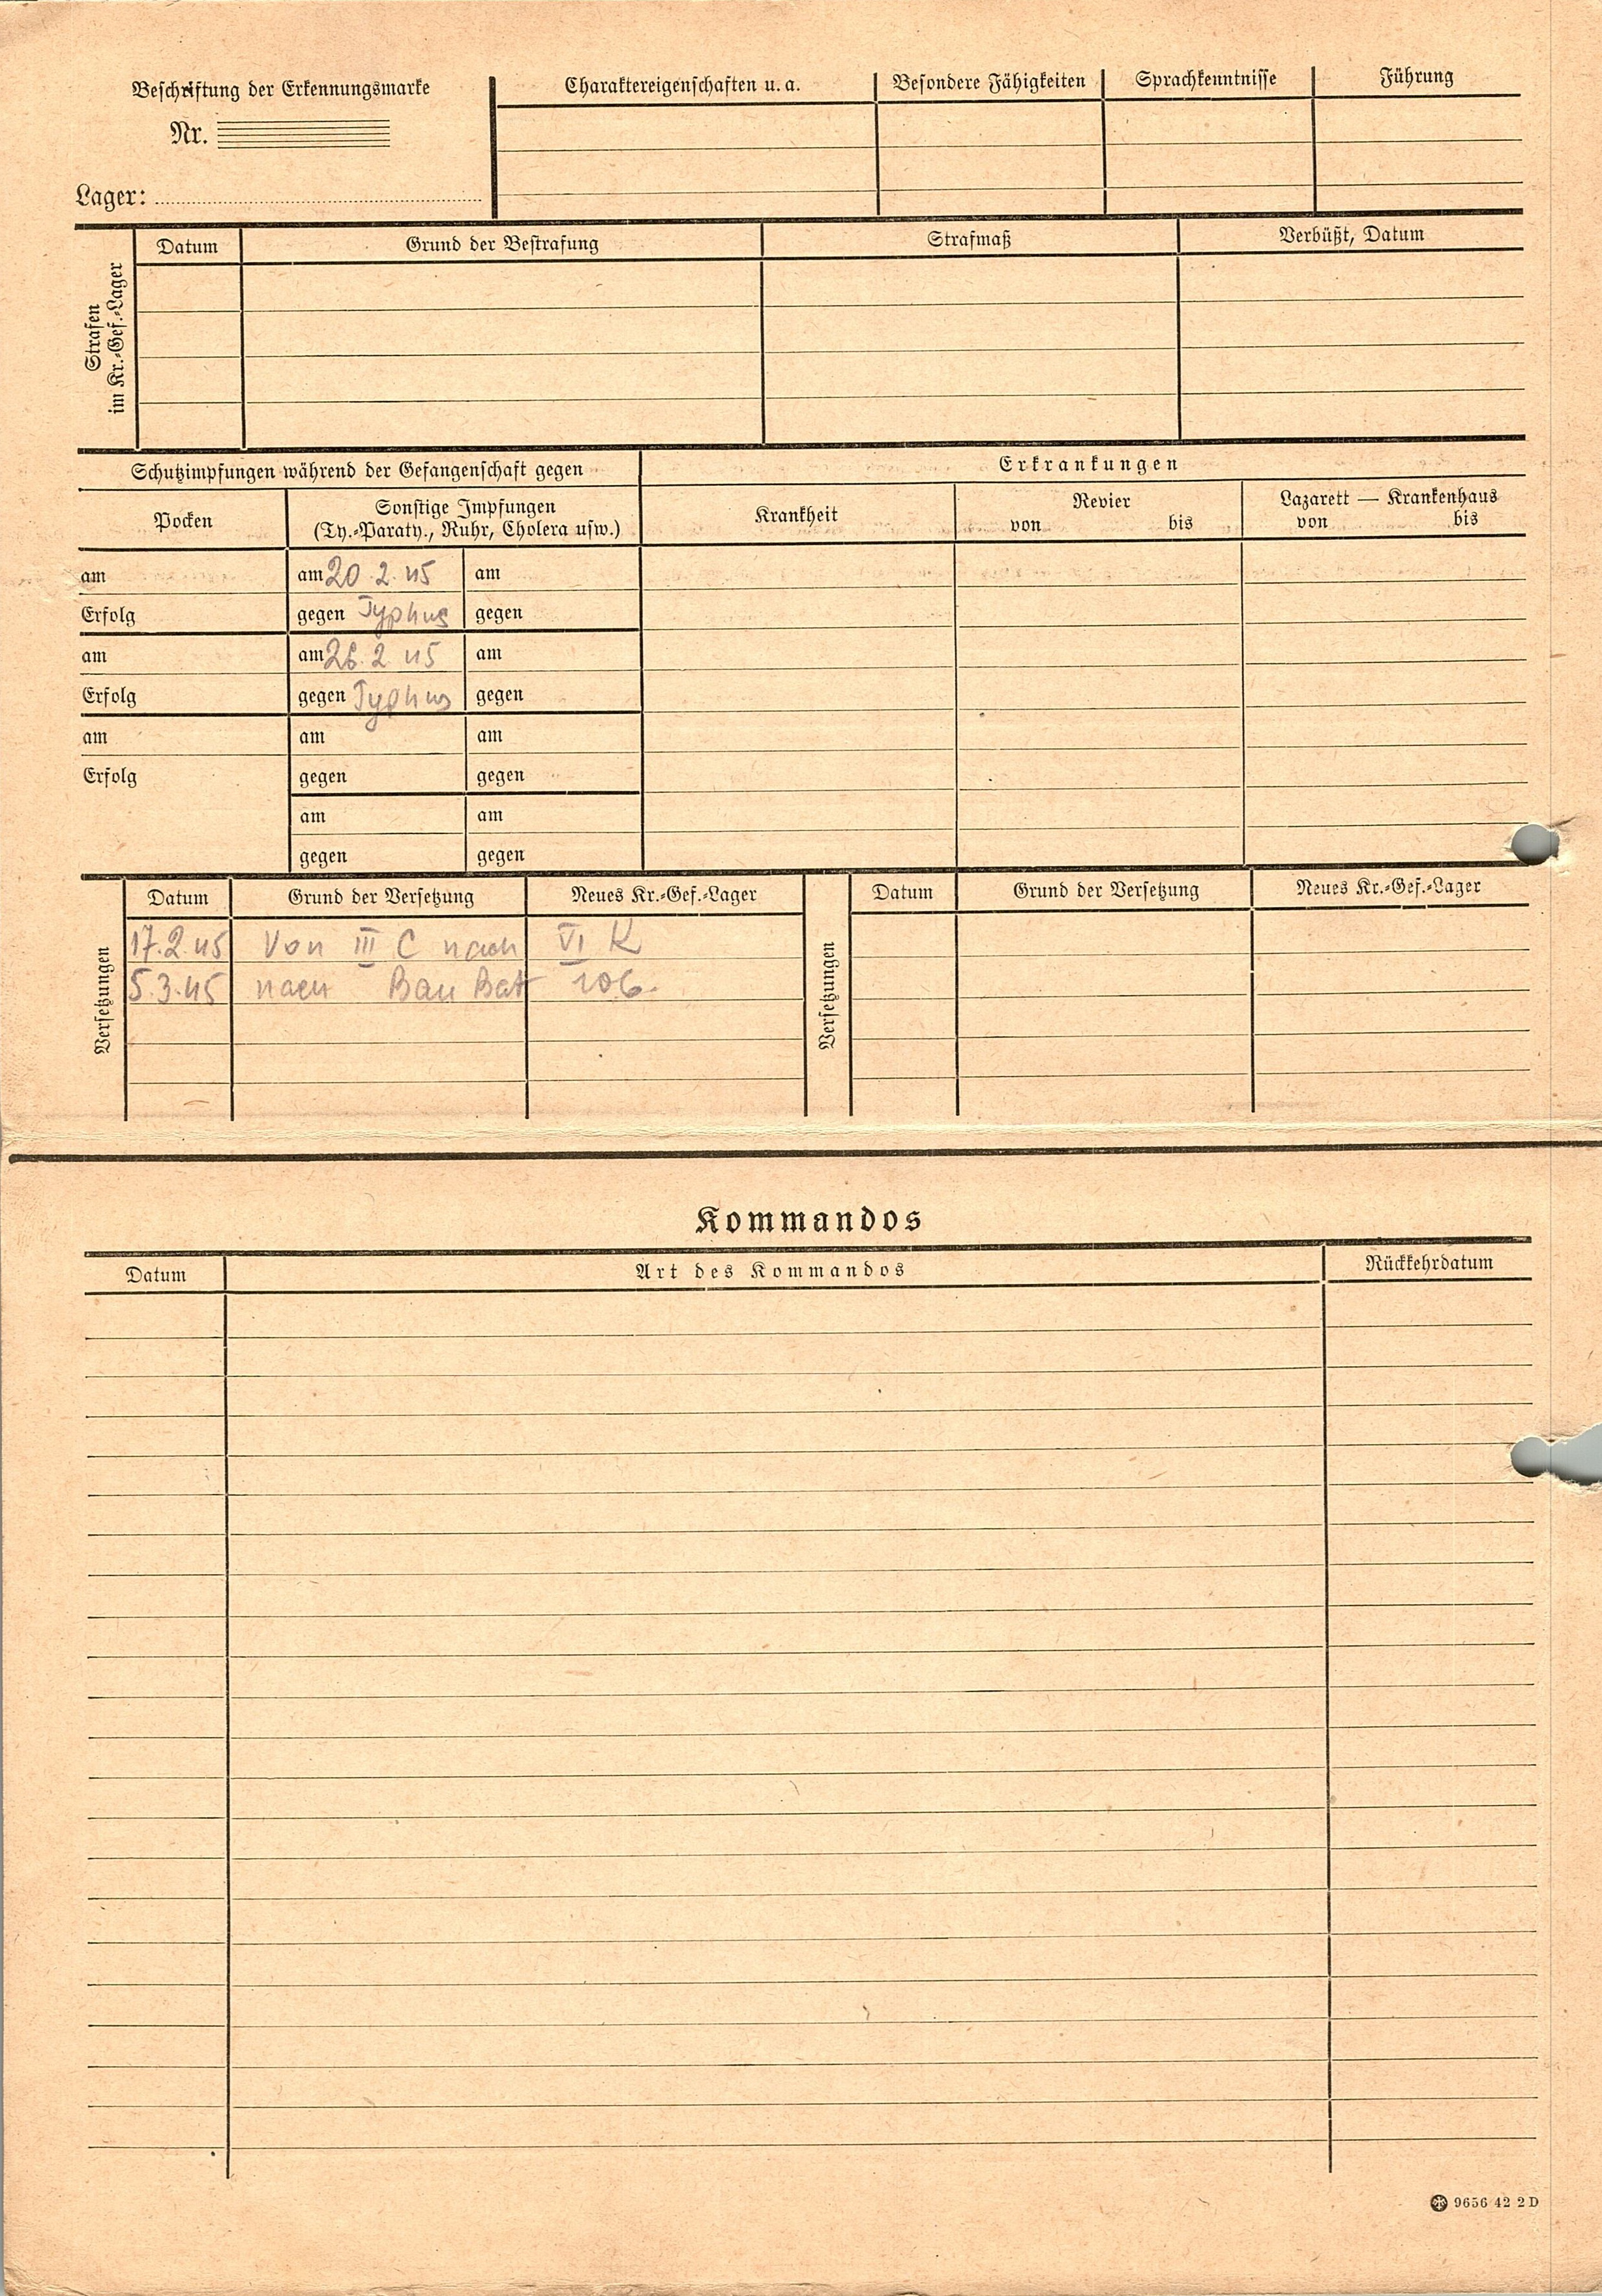 Beschriftung der Erkennungsmarke
Nr.
Lager:
Charaktereigenschaften u. a.
Besondere Fähigkeiten
Sprachkenntnisse
Führung
Strafen
im Kr.-Gef.-Lager
Datum
Grund der Bestrafung
Strafmaß
Verbüßt, Datum
Schutzimpfungen während der Gefangenschaft gegen
Erkrankungen
Pocken
Sonstige Impfungen
(Ty.-Paraty., Ruhr, Cholera usw.)
Krankheit
Revier
von bis
Lazarett — Krankenhaus
von bis
am am 20.2.45 am
Erfolg gegen Typhus gegen
am am 26.2 45 am
Erfolg gegen Typhus gegen
am am am
Erfolg gegen gegen
am am
gegen gegen
Versetzungen
Datum Grund der Versetzung Neues Kr.-Gef.-Lager
17.2.45 Von III C nach VI K
5.3.45 nach Bau Bat 106.
Versetzungen
Datum Grund der Versetzung Neues Kr.-Gef.-Lager
Kommandos
Datum Art des Kommandos Rückkehrdatum
9656 42 2 D